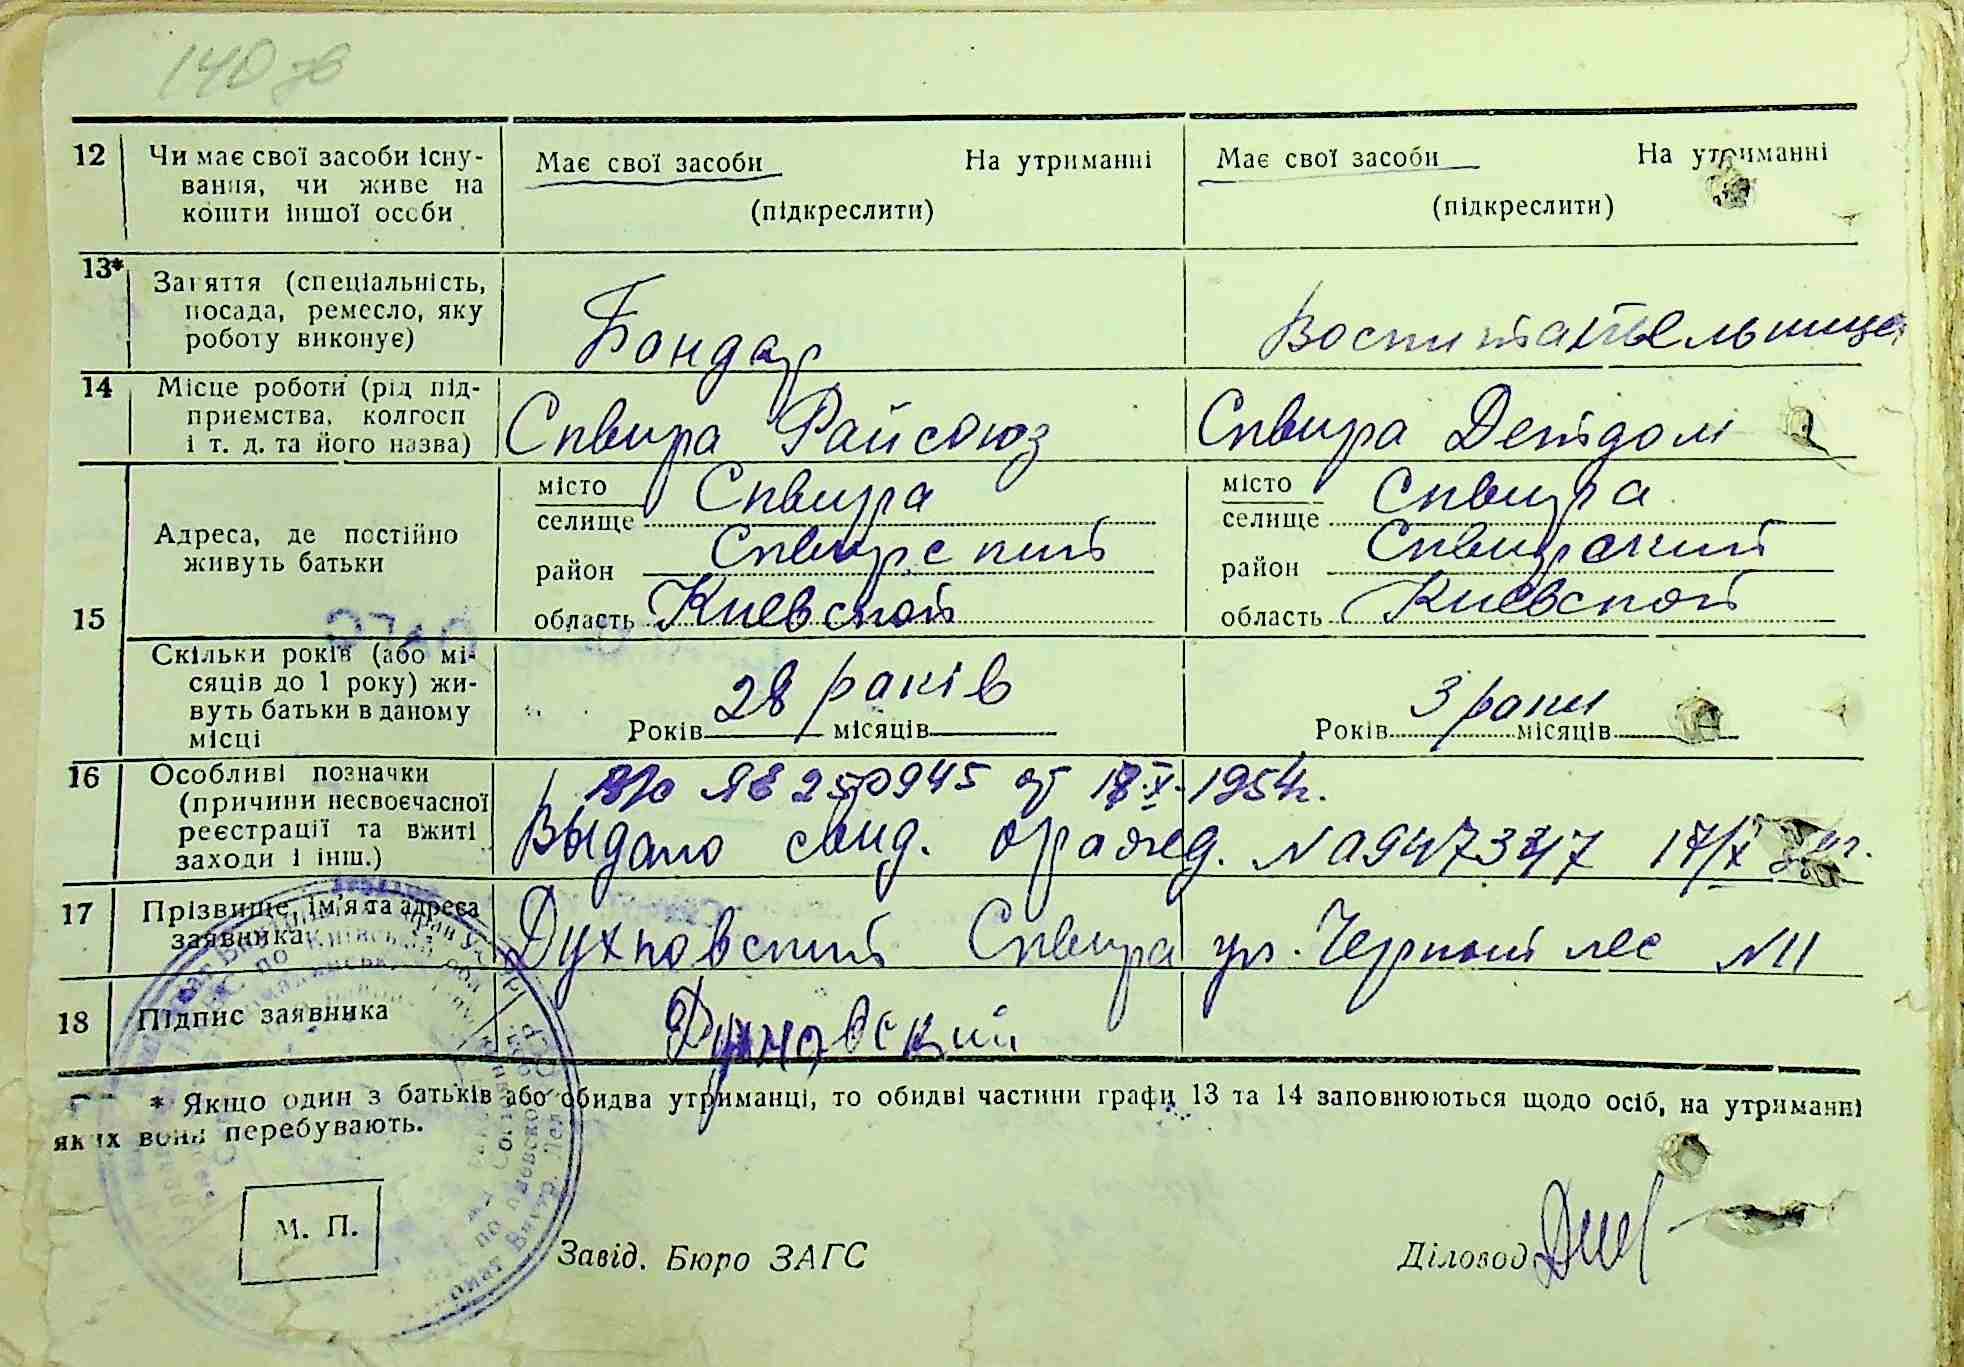 140 зв
12 Чи має свої засоби існу- Має свої засоби На утриманні Має свої засоби На утриманні
вання, чи живе на
кошти іншої особи (підкреслити) (підкреслити)
13* Заняття (спеціальність,
посада, ремесло, яку Бондар Воспитательница
роботу виконує)
14 Місце роботи (рід під-
приємства, колгосп Сквира Райсоюз Сквира Детдом
і т. д. та його назва)
15 Адреса, де постійно
живуть батьки
місто Сквира місто Сквира
селище селище
район Сквирский район Сквирский
область Киевской область Киевской
Скільки років (або мі-
сяців до 1 року) жи-
вуть батьки в даному
місці
28 років 3 роки
Років місяців Років місяців
16 Особливі позначки ЯЕ 250945 от 1954г.
(причини несвоєчасної
реєстрації та вжиті
заходи і інш.) Выдано свид. о рожд. 17/X
17 Прізвище, ім'я та адреса
заявника Духновский Сквира ул. Черный лес №11
18 Підпис заявника Духновский
* Якщо один з батьків або обидва утриманці, то обидві частини графи 13 та 14 заповнюються щодо осіб, на утриманні
яких вони перебувають.
М. П.
Завід. Бюро ЗАГС Діловод